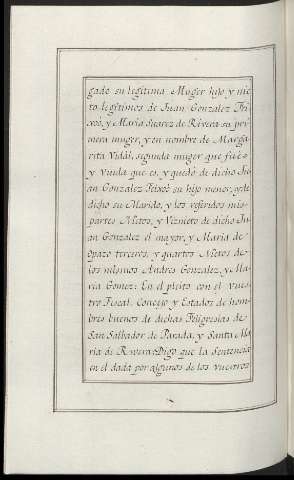 gado su legitima Muger hijo y nie
to legitimos de Juan Gonzalez Fei
xoó, y Maria Suarez de Rivera su pri
mera muger, y en nombre de Marga
rita Vidál, segunda muger que fué
y Viuda que es, y quedó de dicho Ju
an Gonzalez Feixoó su hijo menor, y de
dicho su Marido, y los referidos mis
partes Nietos, y Viznieto de dicho Ju
an Gonzalez el mayor, y Maria de
Opazo terceros, y quartos Nietos de
los mismos Andres Gonzalez, y Ma
ria Gomez: En el pleito con el Vues
tro Fiscal, Concejo y Estados de hom
bres buenos de dichas Feligresias de
San Salbador de Parada, y Santa Ma
ria de Rivera: Digo que la Sentencia
en el dada por algunos de los Vuestros